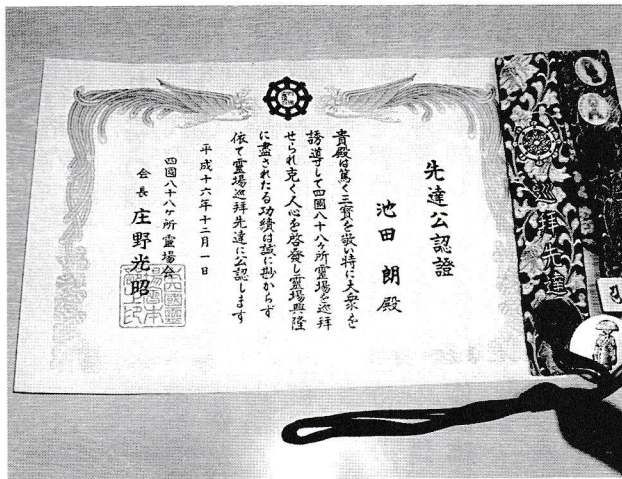 先達公認證
池田 朗 殿
貴殿は篤く三寳を敬い特に大衆を
誘導して四國八十八ヶ所霊場を巡拜
せられ克く人心を啓發し霊場興隆
に盡されたる功績は誠に尠からず
依て霊場巡拜先達に公認します
平成十六年十二月一日
四國八十八ヶ所霊場会
会長 庄野光昭
巡拜先達